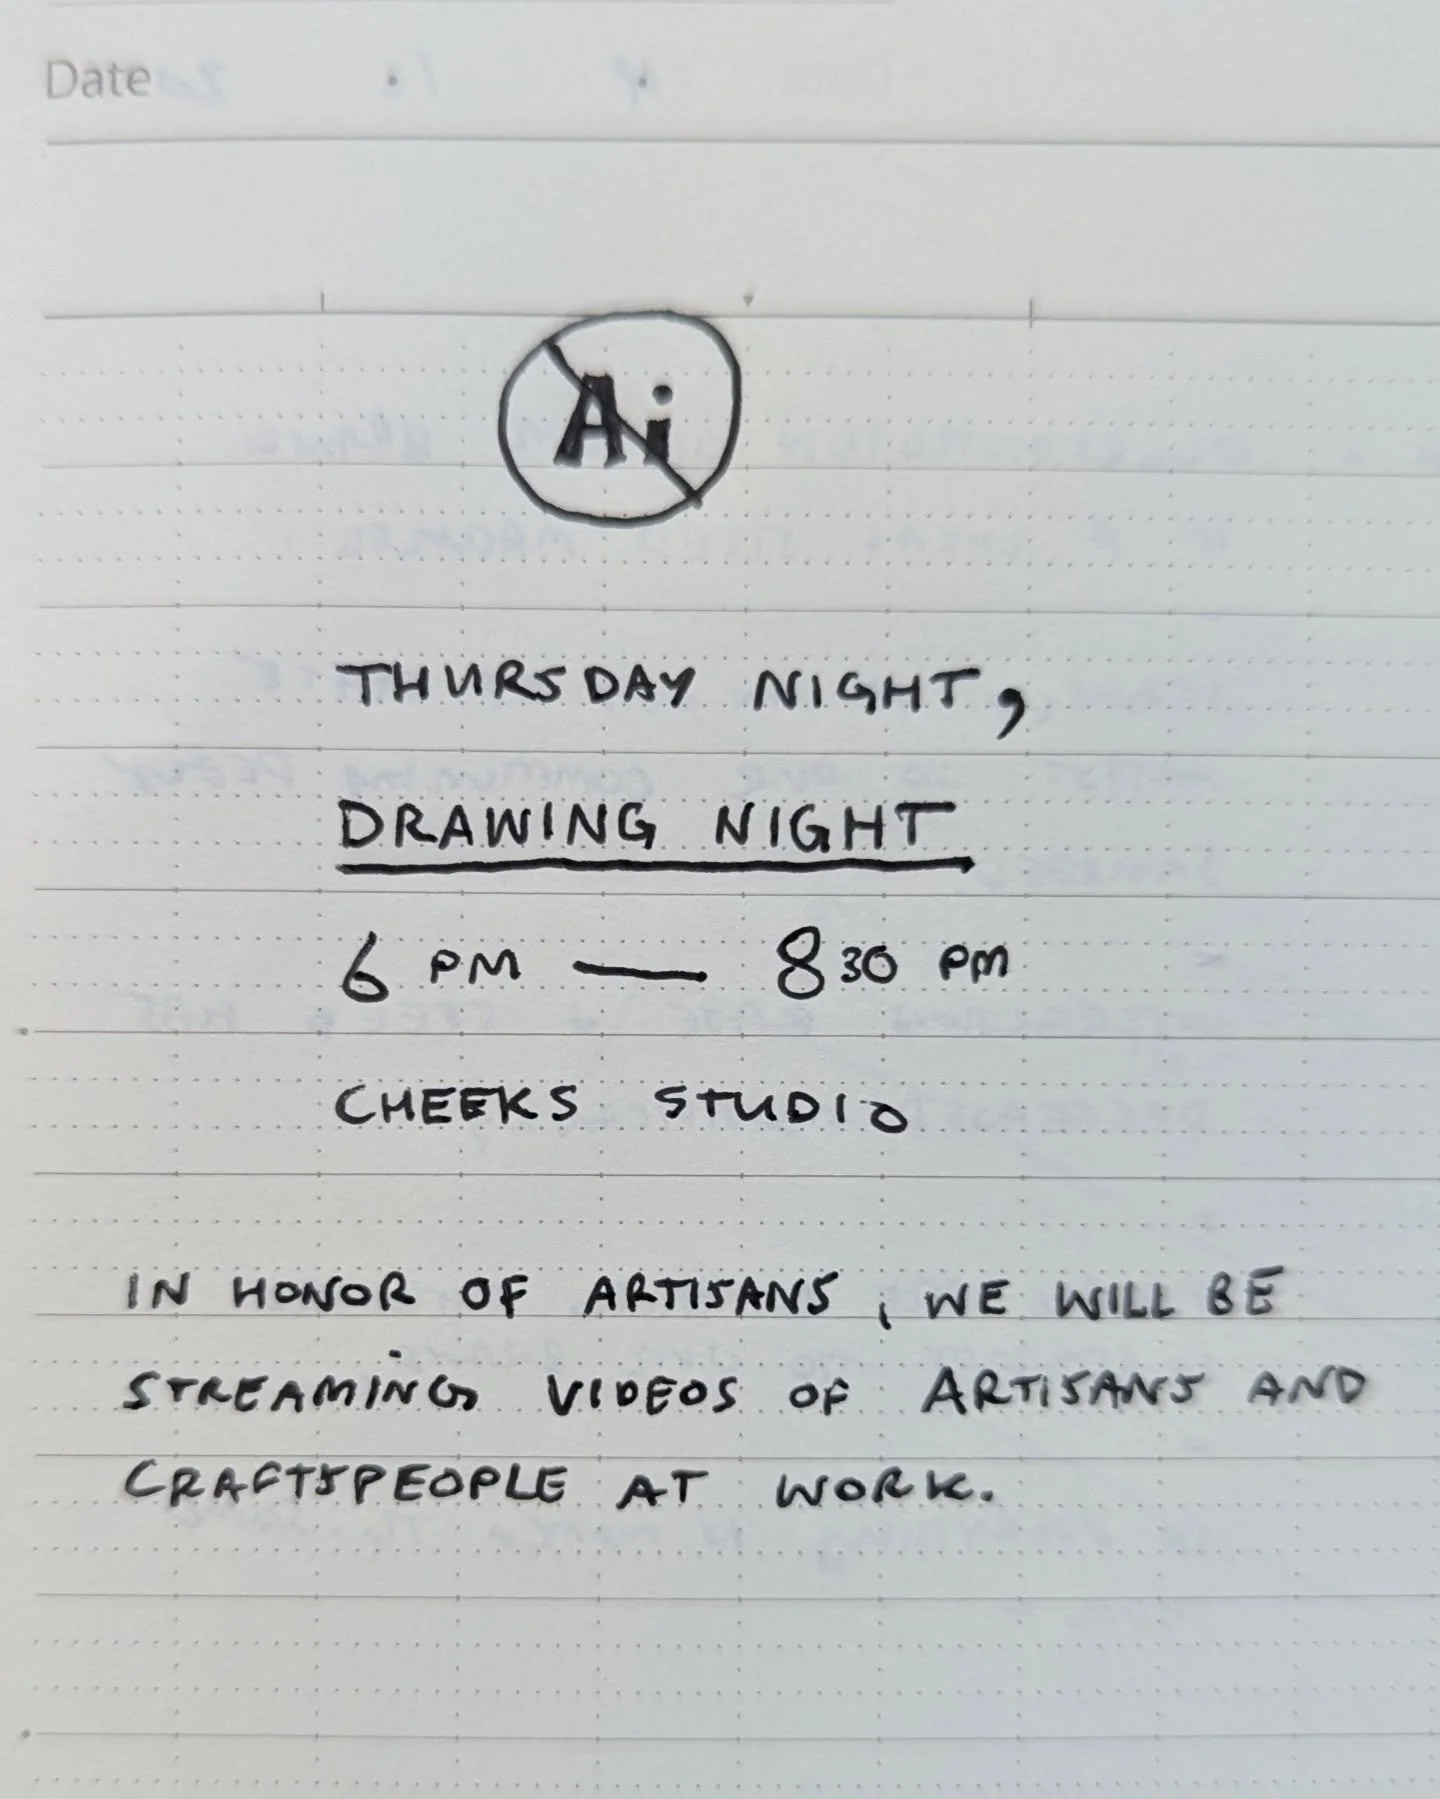 Date
Ai
THURSDAY NIGHT,
DRAWING NIGHT
6 PM — 8 30 PM
CHEEKS STUDIO
IN HONOR OF ARTISANS, WE WILL BE
STREAMING VIDEOS OF ARTISANS AND
CRAFTSPEOPLE AT WORK.